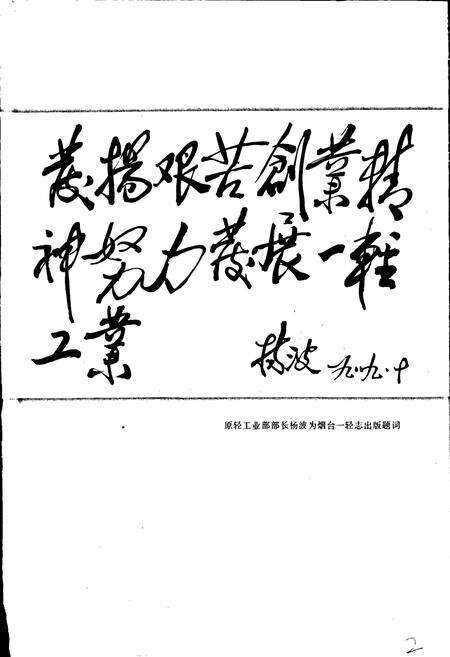 發揚艰苦創業精
神努力發展一輕
工業
杨波 九八九·十
原轻工业部部长杨波为烟台一轻志出版题词
2